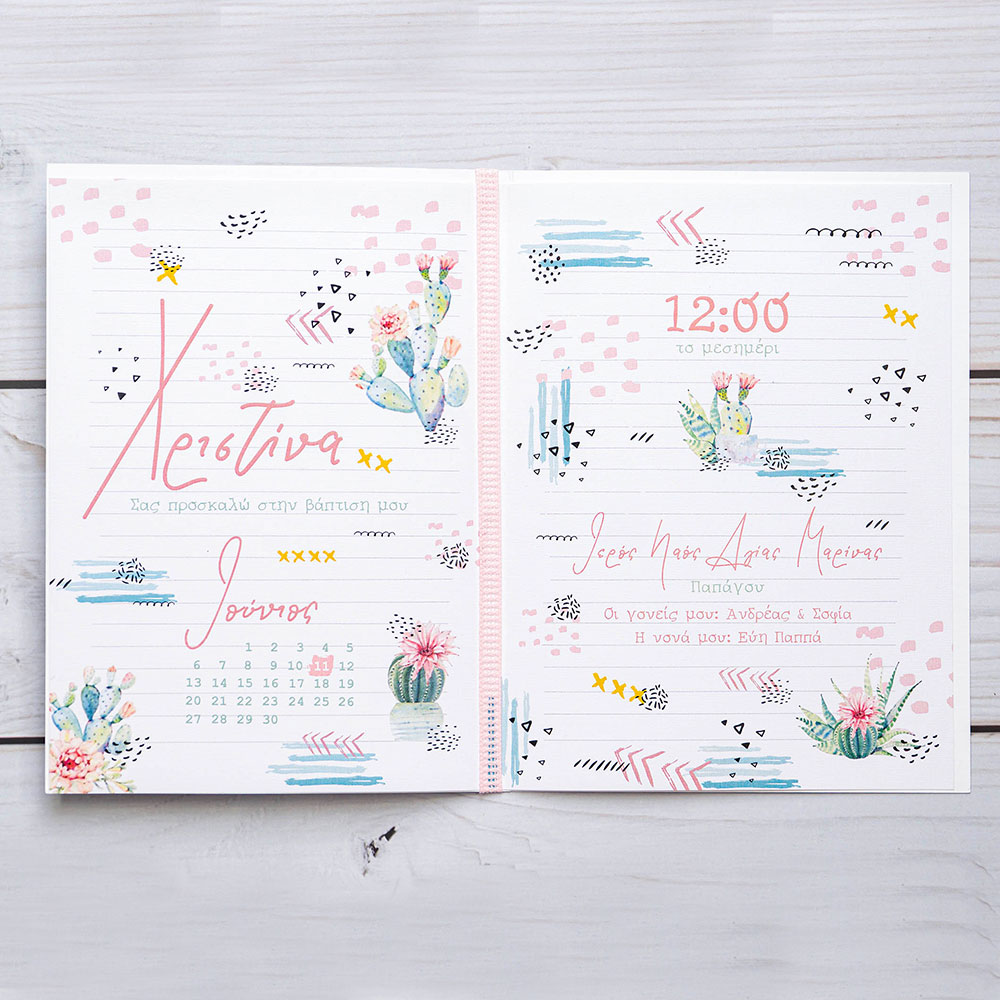 Χριστίνα
Σας προσκαλώ στην βάπτιση μου
Ιούνιος
1 2 3 4 5
6 7 8 9 10 11 12
13 14 15 16 17 18 19
20 21 22 23 24 25 26
27 28 29 30
12:00
το μεσημέρι
Ιερός Ναός Αγίας Μαρίνας
Παπάγου
Οι γονείς μου: Ανδρέας & Σοφία
Η νονά μου: Εύη Παππά